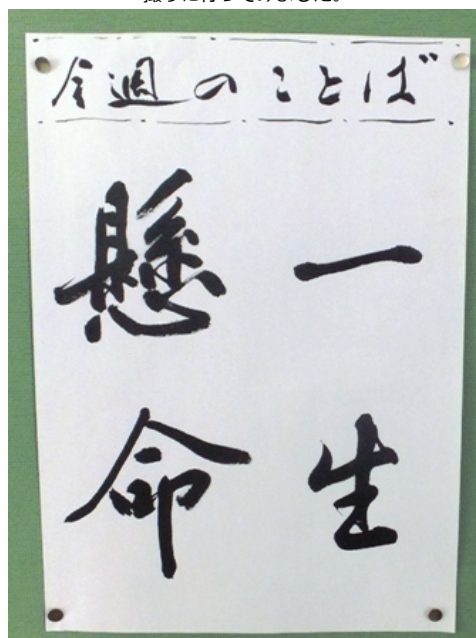 今週のことば
一生
懸命